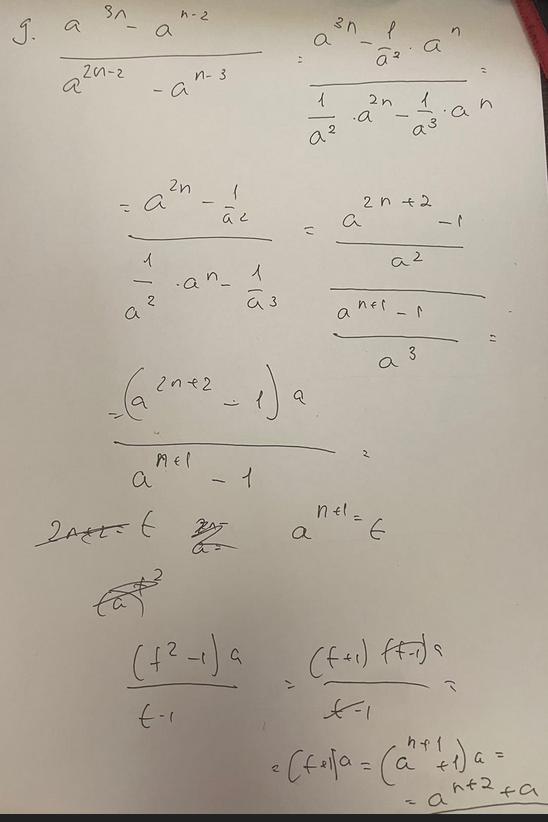 g. (a^{3n} - a^{n-2}) / (a^{2n-2} - a^{n-3}) = (a^{3n} - 1/a^2 · a^n) / (1/a^2 · a^{2n} - 1/a^3 · a^n) =
= (a^{2n} - 1/a^2) / (1/a^2 · a^n - 1/a^3) = ((a^{2n+2} - 1) / a^2) / ((a^{n+1} - 1) / a^3) =
= (a^{2n+2} - 1) a / (a^{n+1} - 1) =
t a^{n+1} = t
((t^2 - 1) a) / (t - 1) = ((t+1) (t-1) a) / (t-1) =
= (t+1) a = (a^{n+1} + 1) a =
= a^{n+2} + a